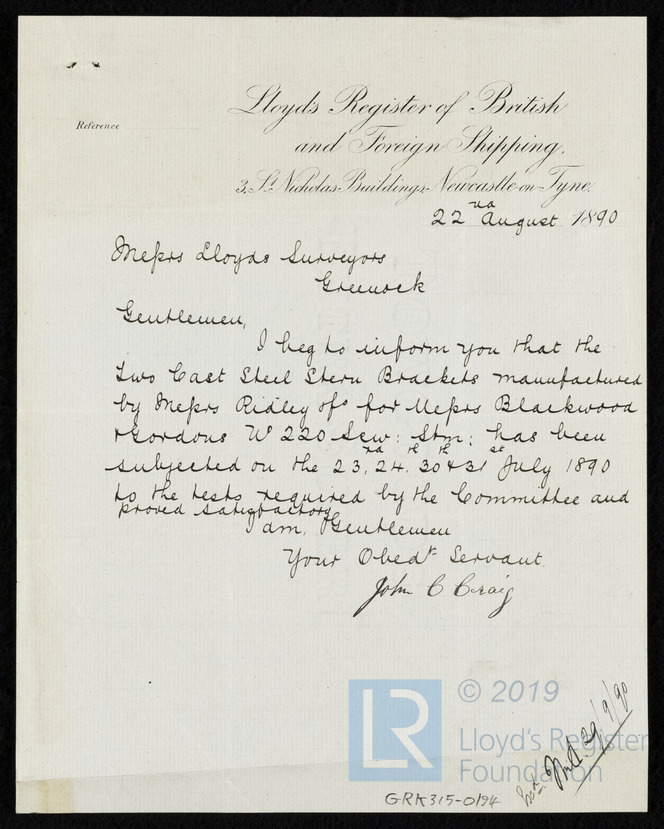 Lloyd's Register of British
and Foreign Shipping,
Reference
3, St. Nicholas Buildings, Newcastle-on-Tyne.
22nd August 1890
Messrs Lloyds Surveyors
Greenock
Gentlemen,
I beg to inform you that the
Two Cast Steel Stern Brackets manufactured
by Messrs Ridley for Messrs Blackwood
& Gordons No 220 Scw: Stm: has been
subjected on the 23rd, 24th, 30th & 31st July 1890
to the tests required by the Committee and
proved satisfactory
I am, Gentlemen
Your Obedt Servant
John C Craig
© 2019
LR
Lloyd's Register
Foundation
29/9/90
GRK315-0194